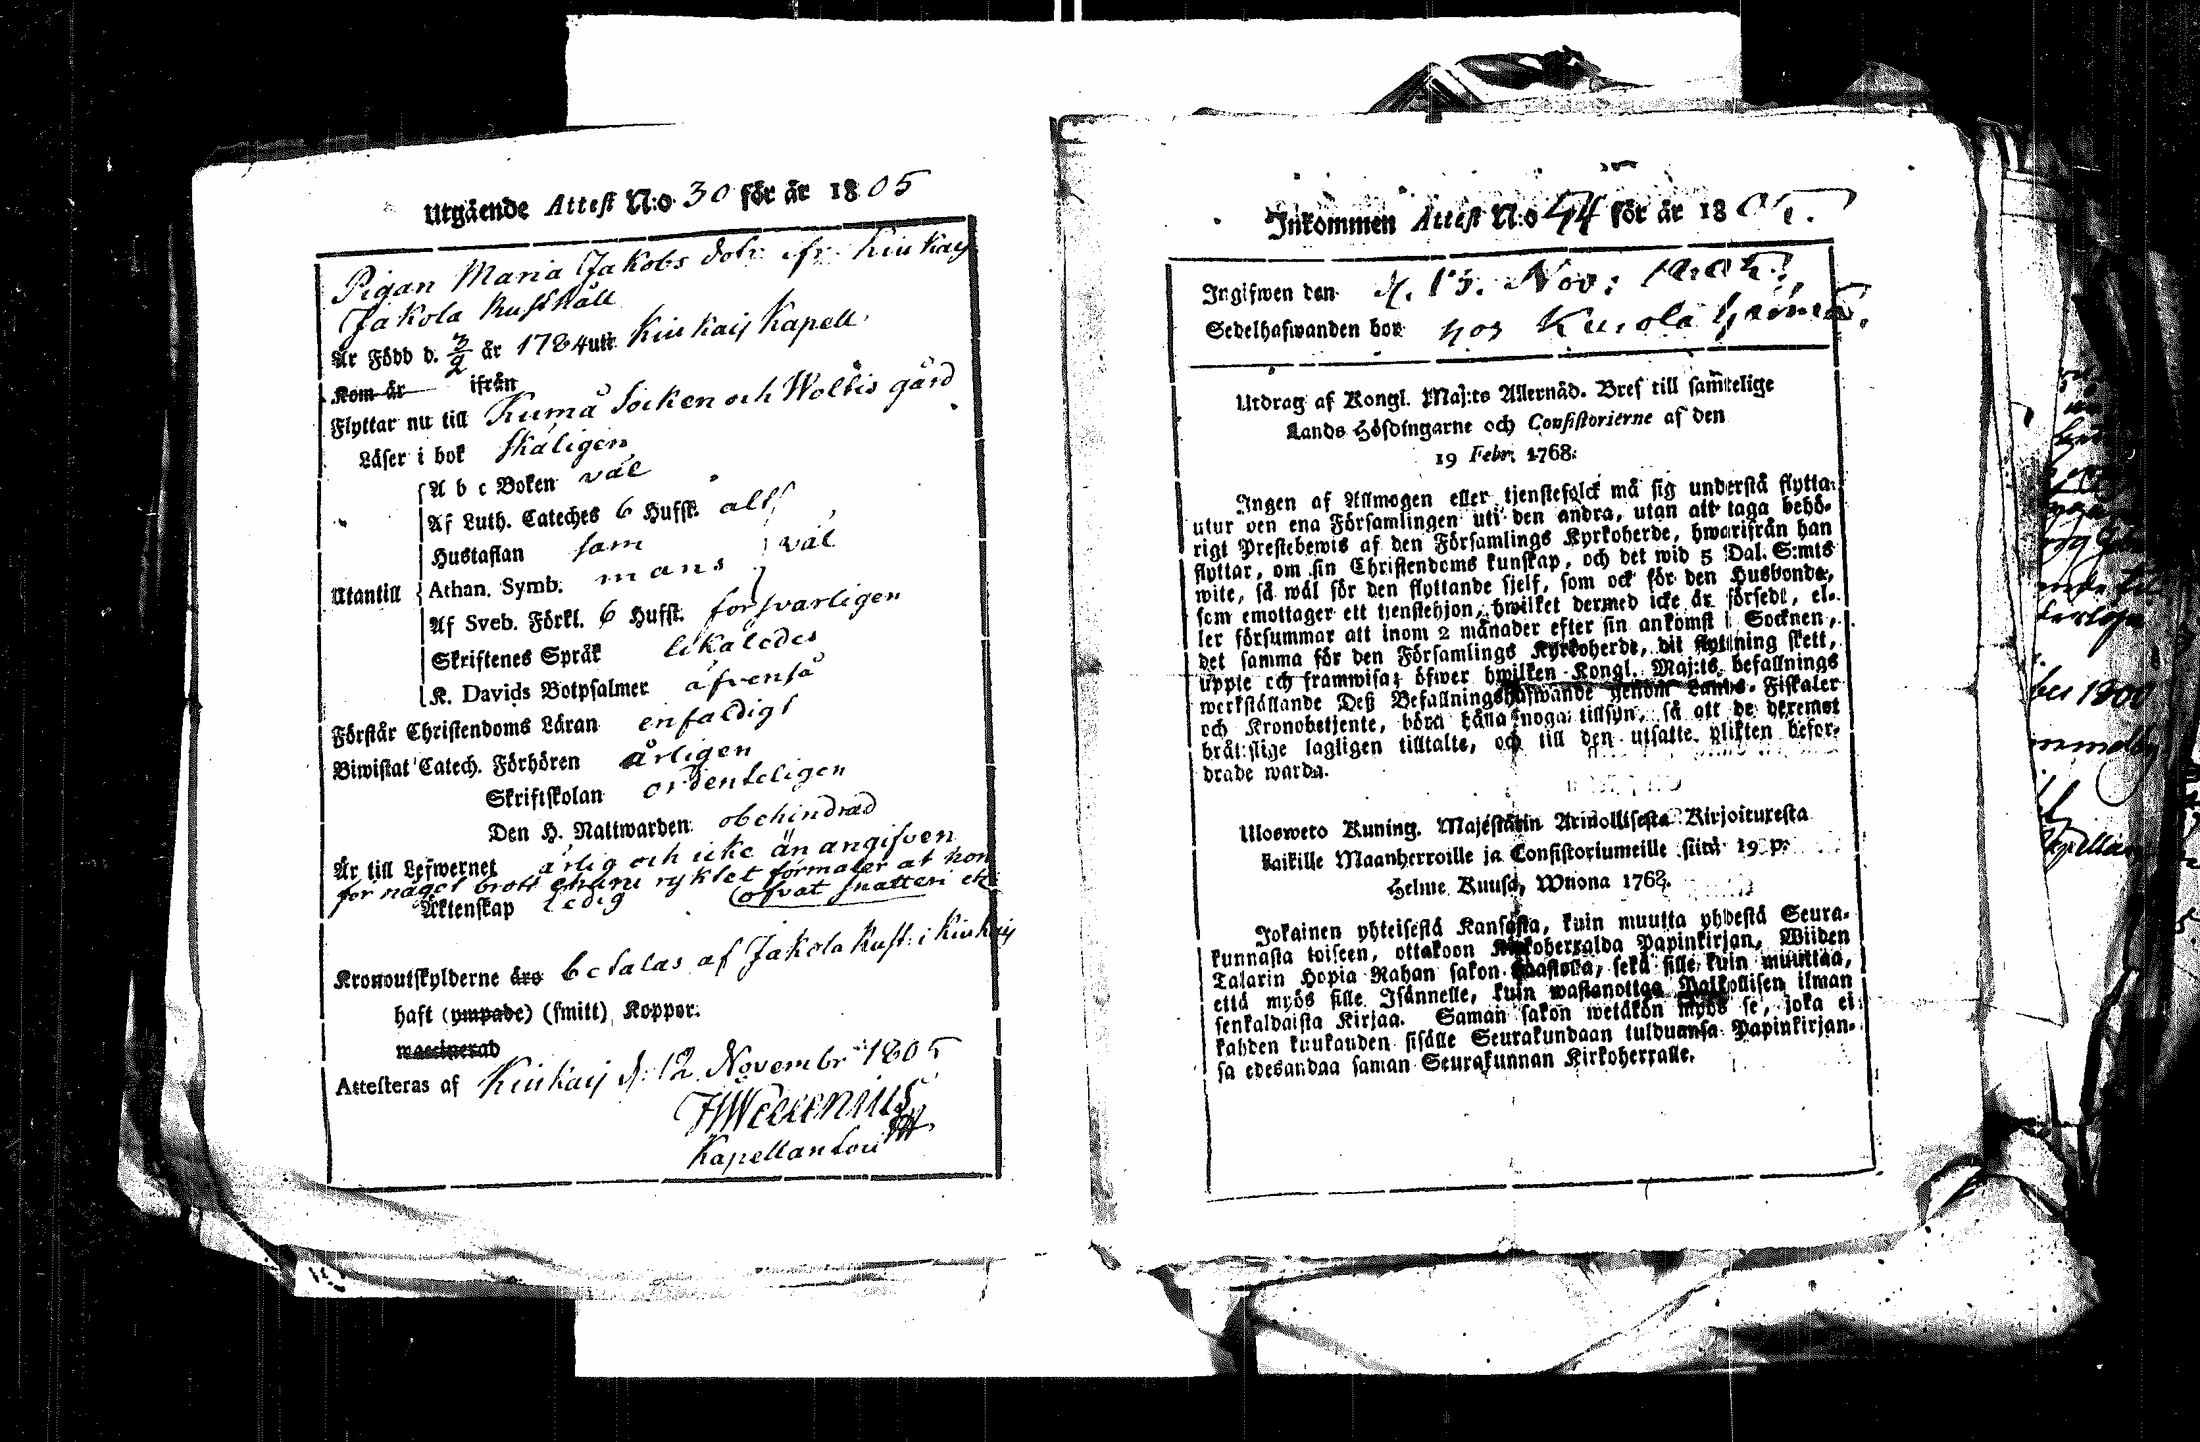 Utgående Attest N:o 30 för år 1805
Pigan Maria Jakobs dotr. ifr. Kiukais
Jakola Rusthåll
Är Född d. 3/2 år 1784 uti Kiukais Kapell
Kom år ifrån
Flyttar nu till Kumå Socken och Woltis gård
Läser i bok skäligen
A b c Boken väl
Af Luth. Cateches 6 Hufst. alt
Hustaflan sam
väl
Utantill Athan. Symb. mans
Af Sveb. Förkl. 6 Hufst. försvarligen
Skriftenes Språk likaledes
K. Davids Botpsalmer äfvenså
Förstår Christendoms Läran enfaldigt
Biwistat Catech. Förhören årligen
Skriftskolan ordenteligen
Den H. Nattwarden obehindrad
Är till Lefwernet ärlig och icke än angifven
för något brott ehuru ryktet förmäler at hon
Äktenskap ledig (ofvat snatteri etc
Kronoutskylderne äro betalas af Jakola Rust: i Kiukais
haft (ympade) (smitt) Koppor.
waccinerad
Attesteras af Kiukais d. 12 Novembr 1805
Kapellan
Inkommen Attest N:o 44 för år 1805.
Ingifwen den d. 15. Nov: 1805.
Sedelhafwanden bor hos
Utdrag af Kongl. Maj:ts Allernåd. Bref till samtelige
Lands Höfdingarne och Consistorierne af den
19 Febr. 1768.
Ingen af Allmogen eller tjenstefolck må sig understå flytta
utur den ena Församlingen uti den andra, utan att taga behö-
rigt Prestebewis af den Församlings Kyrkoherde, hwarifrån han
flyttar, om sin Christendoms kunskap, och det wid 5 Dal. S:mts
wite, så wäl för den flyttande sjelf, som ock för den Husbonde,
som emottager ett tienstehjon, hwilket dermed icke är försedt, el-
ler försummar att inom 2 månader efter sin ankomst i Socknen,
det samma för den Församlings Kyrkoherde, dit flyttning skett,
uppte och framwisa; öfwer hwilken Kongl. Maj:ts befallnings
werkställande Deß Befallningshafwande genom Lands-Fiskaler
och Kronobetjente, böra hålla noga tillsyn, så att de deremot
bråtslige lagligen tilltalte, och till den utsatte plikten befor-
drade warda.
Ulosweto Kuning. Majestätin Armollisesta Kirjoituxesta
kaikille Maanherroille ja Consistoriumeille siitä 19 p.
Helme Kuusa, Wuona 1768.
Jokainen yhteisestä Kansasta, kuin muutta yhdestä Seura-
kunnasta toiseen, ottakoon Kirkoherralda Papinkirjan, Wiiden
Talarin Hopia Rahan sakon haastolla, sekä sille kuin muuttaa,
että myös sille Isännelle, kuin wastanottaa Palkollisen ilman
senkaldaista Kirjaa. Saman sakon wetäkön myös se, joka ei
kahden kuukauden sisälle Seurakundaan tulduansa Papinkirjan-
sa edesandaa saman Seurakunnan Kirkoherralle.